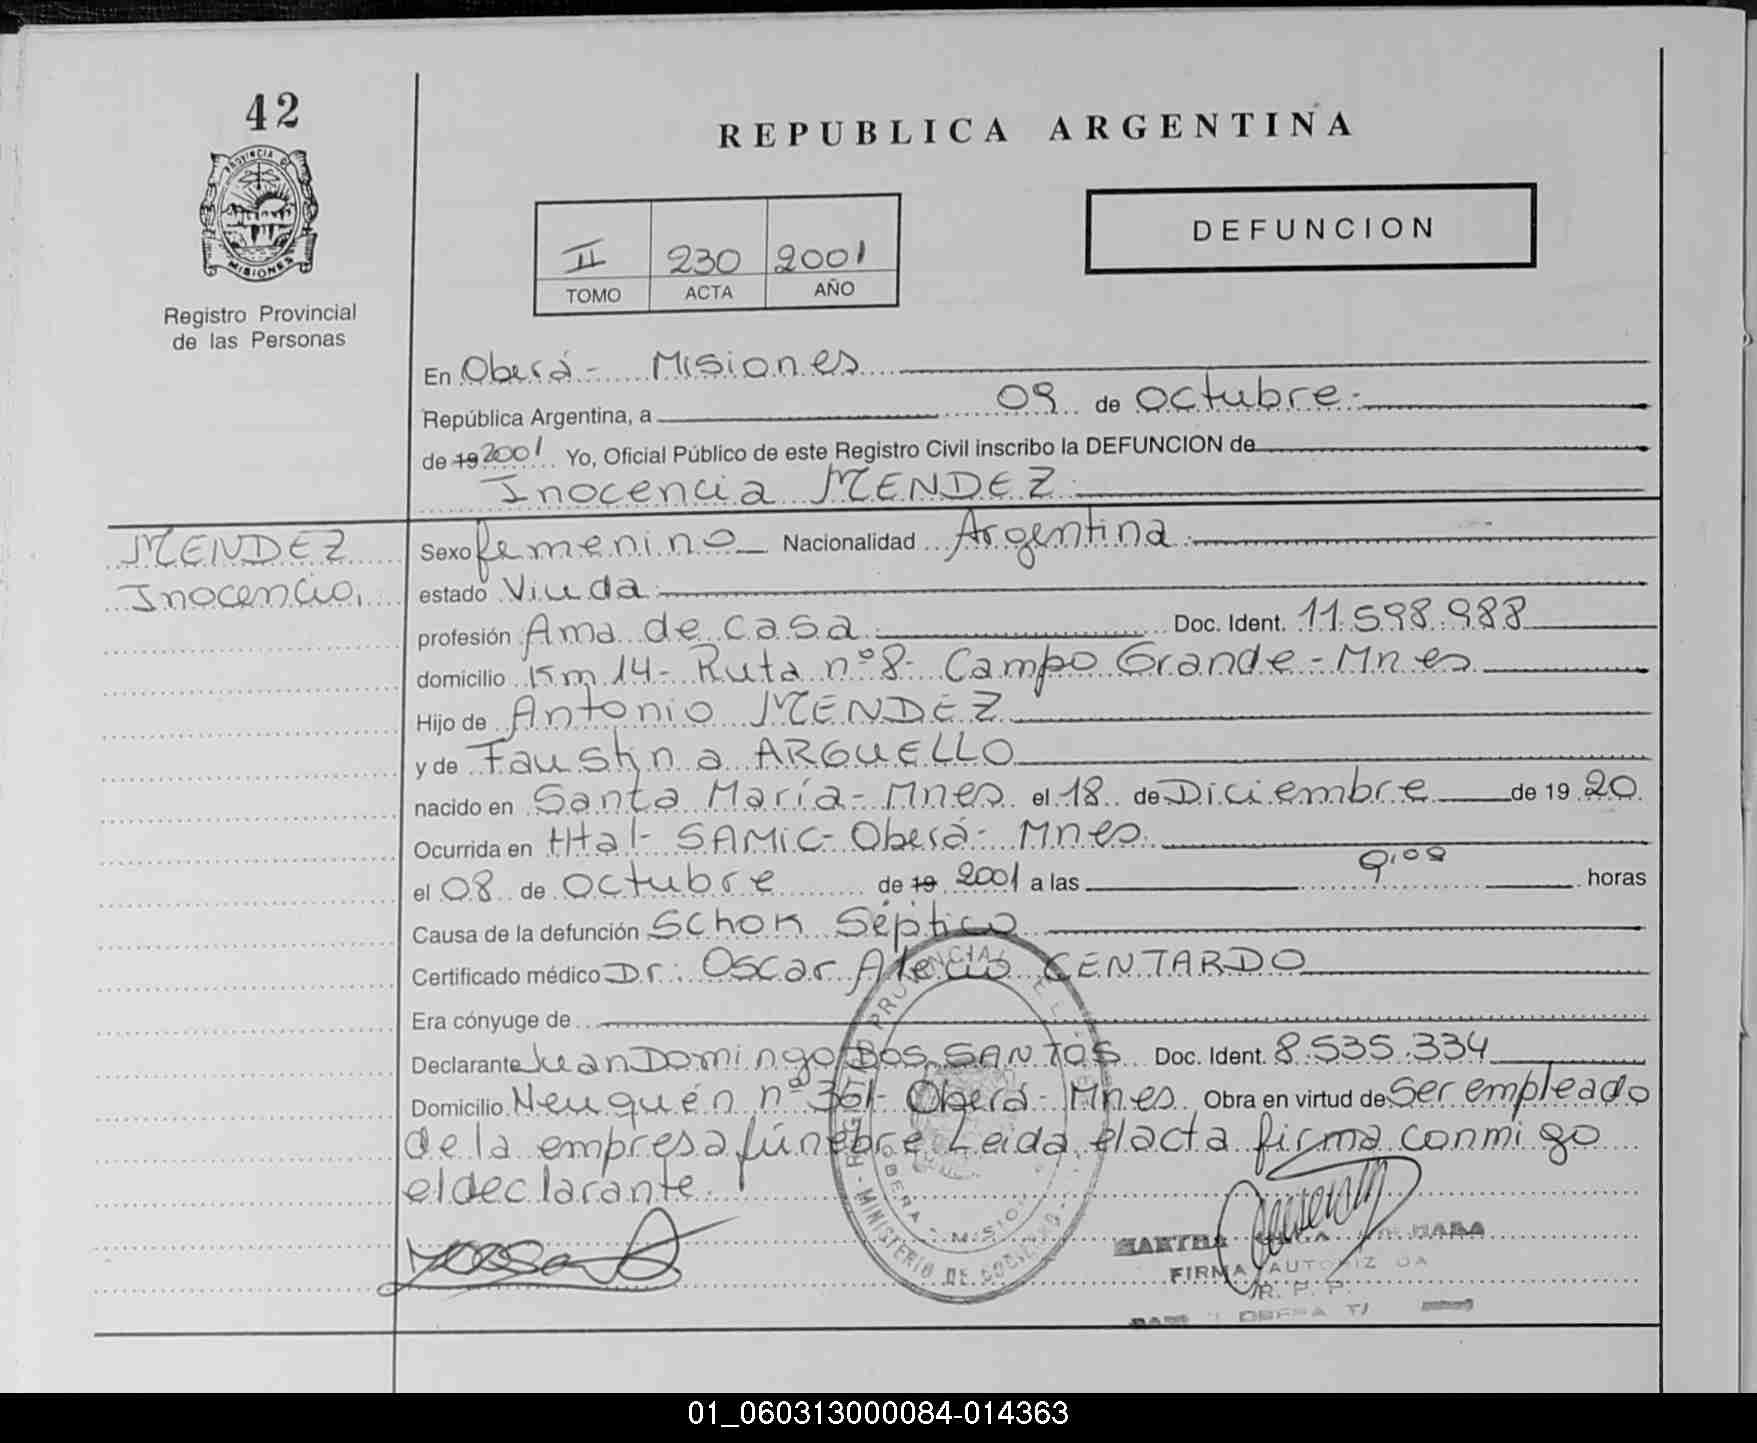 42
REPUBLICA ARGENTINA
PROVINCIA D
MISIONES
Registro Provincial
de las Personas
II 230 2001
TOMO ACTA AÑO
DEFUNCION
En Oberá - Misiones
República Argentina, a 09 de octubre.
de 19 2001 Yo, Oficial Público de este Registro Civil inscribo la DEFUNCION de
Inocencia MENDEZ
MENDEZ
Inocencia
Sexo femenino Nacionalidad Argentina
estado Viuda
profesión Ama de casa Doc. Ident. 11.598.988
domicilio Km 14- Ruta nº 8- Campo Grande - Mnes
Hijo de Antonio MENDEZ
y de Faustina ARGUELLO
nacido en Santa María - Mnes el 18 de Diciembre de 19 20
Ocurrida en Htal- SAMIC- Oberá- Mnes
el 08 de octubre de 19 2001 a las 9,08 horas
Causa de la defunción Schok Séptico
Certificado médico Dr: Oscar CENTARDO
Era cónyuge de
Declarante Juan Domingo DOS SANTOS Doc. Ident. 8.535.334
Domicilio Neuquén nº 361- Oberá- Mnes Obra en virtud de Ser empleado
de la empresa fúnebre Leida el acta firma conmigo
el declarante
PROVINCIAL
MINISTERIO DE GOBIERNO
OBERA - MISIONES
MARTHA
FIRMA AUTORIZADA
R. P. P.
01_060313000084-014363